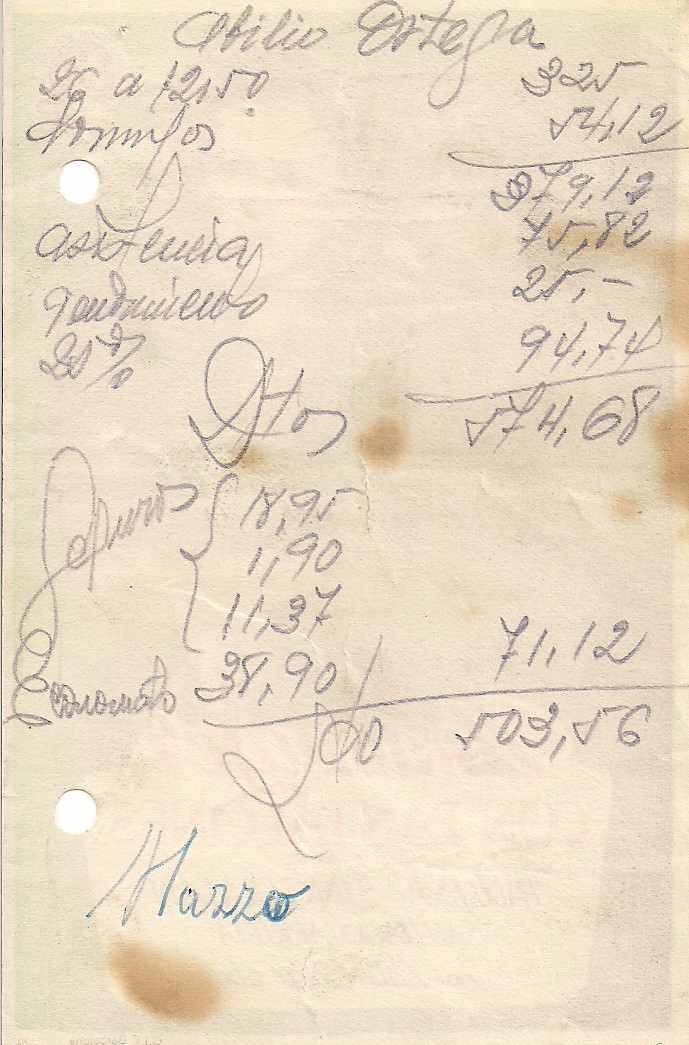 Abilio Ortega
26 a 12,50 325
Domingos 54,12
379,12
asistencia 75,82
rendimiento 25,-
25 % 94,74
574,68
Dtos
Seguros { 18,95
1,90
11,37
Economato 38,90 / 71,12
Lqdo 503,56
Marzo